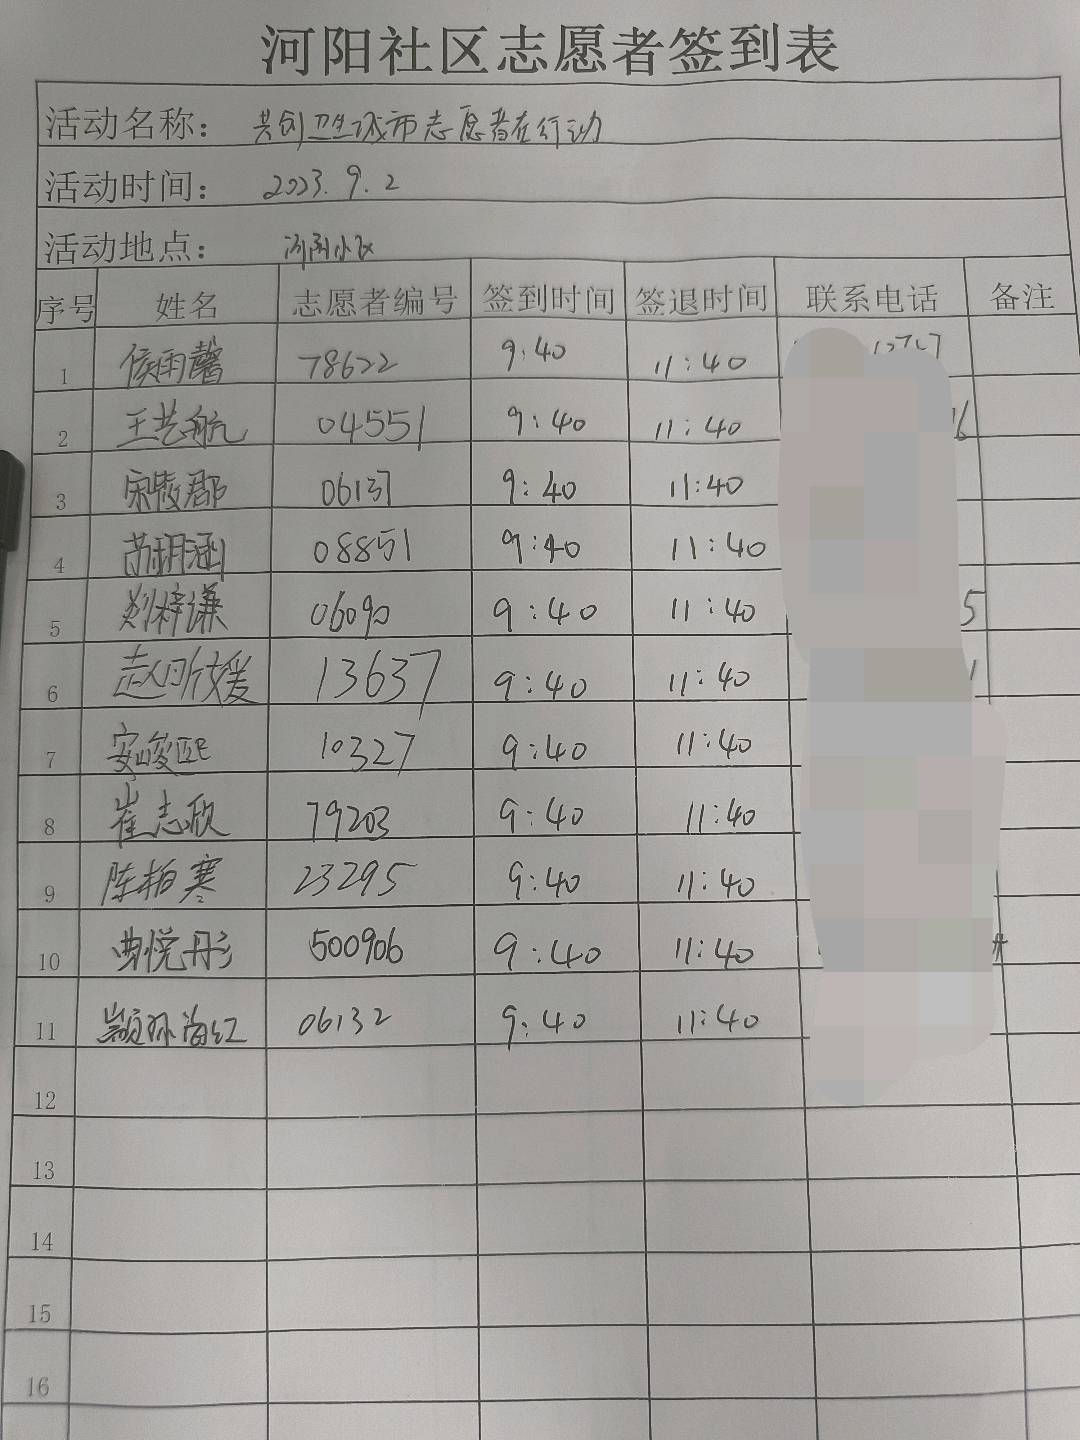 河阳社区志愿者签到表
活动名称： 共创卫生城市志愿者在行动
活动时间： 2023.9.2
活动地点： 河阳小区
序号 姓名 志愿者编号 签到时间 签退时间 联系电话 备注
1 侯雨馨 78622 9:40 11:40
2 王艺航 04551 9:40 11:40
3 宋筱郡 06137 9:40 11:40
4 苏玥涵 08851 9:40 11:40
5 郑梓谦 06090 9:40 11:40 5
6 赵昕媛 13637 9:40 11:40
7 安峻熙 10327 9:40 11:40
8 崔志欣 79203 9:40 11:40
9 陈柏寒 23295 9:40 11:40
10 曲悦彤 500906 9:40 11:40
11 颛孙海红 06132 9:40 11:40
12
13
14
15
16